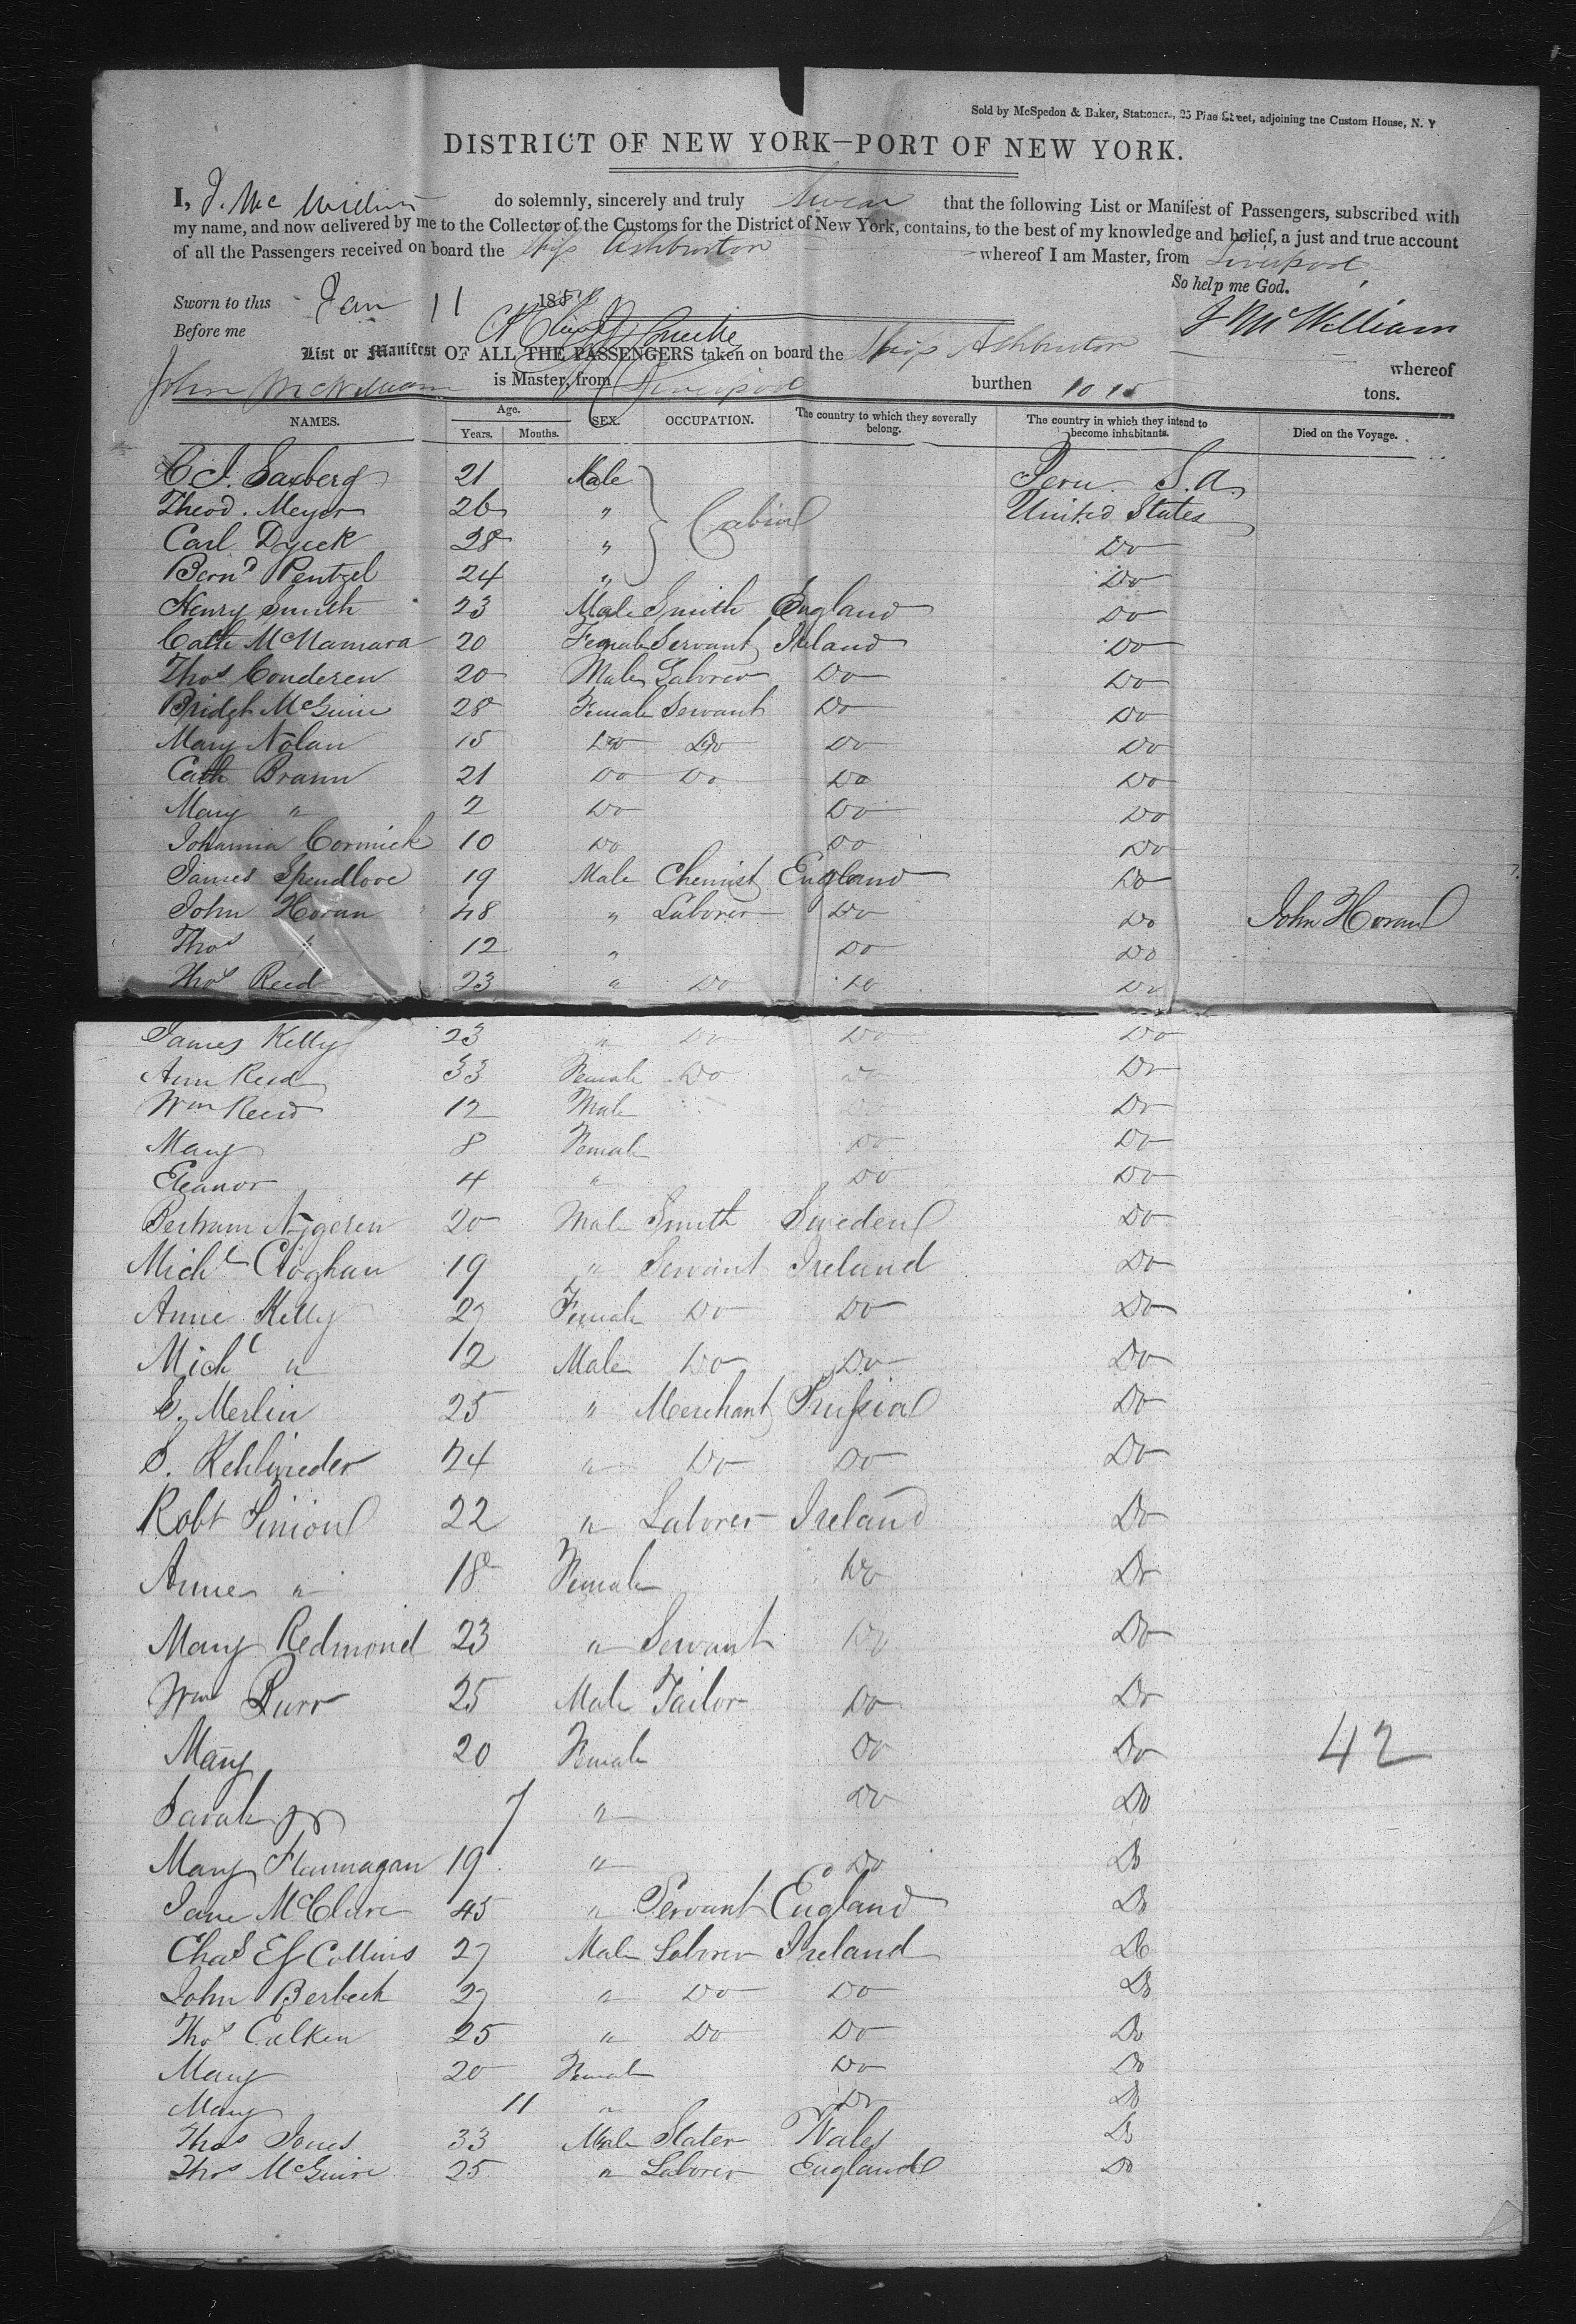 Sold by McSpedon & Baker, Stationers, 25 Pine Street, adjoining the Custom House, N. Y
DISTRICT OF NEW YORK—PORT OF NEW YORK.
I, J. McWilliam do solemnly, sincerely and truly swear that the following List or Manifest of Passengers, subscribed with
my name, and now delivered by me to the Collector of the Customs for the District of New York, contains, to the best of my knowledge and belief, a just and true account
of all the Passengers received on board the Ship Ashburton whereof I am Master, from Liverpool
So help me God.
Sworn to this Jan 11 185
Before me J McWilliam
List or Manifest OF ALL THE PASSENGERS taken on board the Ship Ashburton whereof
John McWilliam is Master, from Liverpool burthen 1015 tons.
NAMES. Age. Years. Months. SEX. OCCUPATION. The country to which they severally belong. The country in which they intend to become inhabitants. Died on the Voyage.
C. J. Saxberg 21 Male Cabin Peru. S.A.
Theod. Meyer 26 " United States
Carl Dyeck 28 " Do
Bernd Pentzel 24 " Do
Henry Smith 23 Male Smith England Do
Cath McNamara 20 Female Servant Ireland Do
Thos Conderen 20 Male Laborer Do Do
Bridgt McGuire 28 Female Servant Do Do
Mary Nolan 15 Do Do Do Do
Cath Brann 21 Do Do Do Do
Mary " 2 Do Do Do
Johanna Cormick 10 Do Do Do
James Spendlove 19 Male Chemist England Do
John Horan 48 " Laborer Do Do John Horan
Thos " 12 " Do Do
Thos Reed 23 " Do Do Do
James Kelly 23 " Do Do Do
Ann Reed 33 Female Do Do Do
Wm Reed 12 Male Do Do
Mary 8 Female Do Do
Eleanor 4 " Do Do
Bertram Nygeren 20 Male Smith Sweden Do
Michl Cloghan 19 " Servant Ireland Do
Anne Kelly 27 Female Do Do Do
Michl " 12 Male Do Do Do
E. Merlin 25 " Merchant Prussia Do
S. Kehlwieder 24 " Do Do Do
Robt Sinion 22 " Laborer Ireland Do
Anne " 18 Female Do Do
Mary Redmond 23 " Servant Do Do
Wm Purr 25 Male Tailor Do Do
Mary 20 Female Do Do 42
Sarah 7 " Do Do
Mary Flannagan 19 " Do Do
Jane McClure 45 " Servant England Do
Chas Collins 27 Male Laborer Ireland Do
John Berbeck 27 " Do Do Do
Thos Calken 25 " Do Do Do
Mary 20 Female Do Do
Mary 11 " Do Do
Thos Jones 33 Male Slater Wales Do
Thos McGuire 25 " Laborer England Do